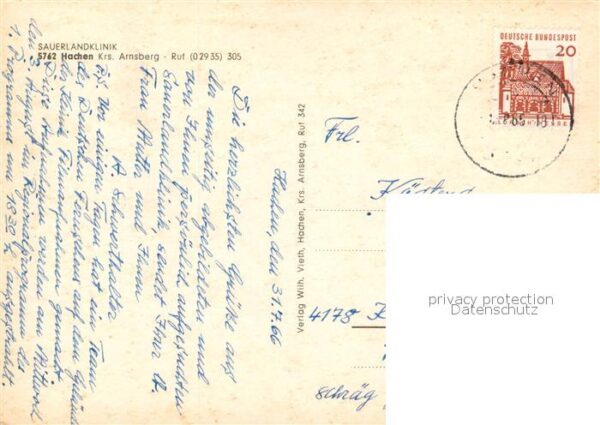 SAUERLANDKLINIK
5762 Hachen Krs. Arnsberg - Ruf (02935) 305
DEUTSCHE BUNDESPOST
20
Verlag Wilh. Vieth, Hachen, Krs. Arnsberg, Ruf 342
Frl.
4178 K
schräg
privacy protection
Datenschutz
Hachen, den 31.7.66
Die herzlichsten Grüße aus
der umseitig abgebildeten und
von Ihnen persönlich aufgesuchten
Sauerlandklinik sendet Ihrer
Frau Mutter und Ihnen
H. Schwerthalter
P.S. Vor einigen Tagen hat ein Team
des Deutschen Fernsehens auf dem Gelände
der Klinik Filmaufnahmen gemacht.
Diese Aufnahmen werden am Mittwoch
den 3. August im Regionalprogramm des
1. Programms um 1830 h ausgestrahlt.